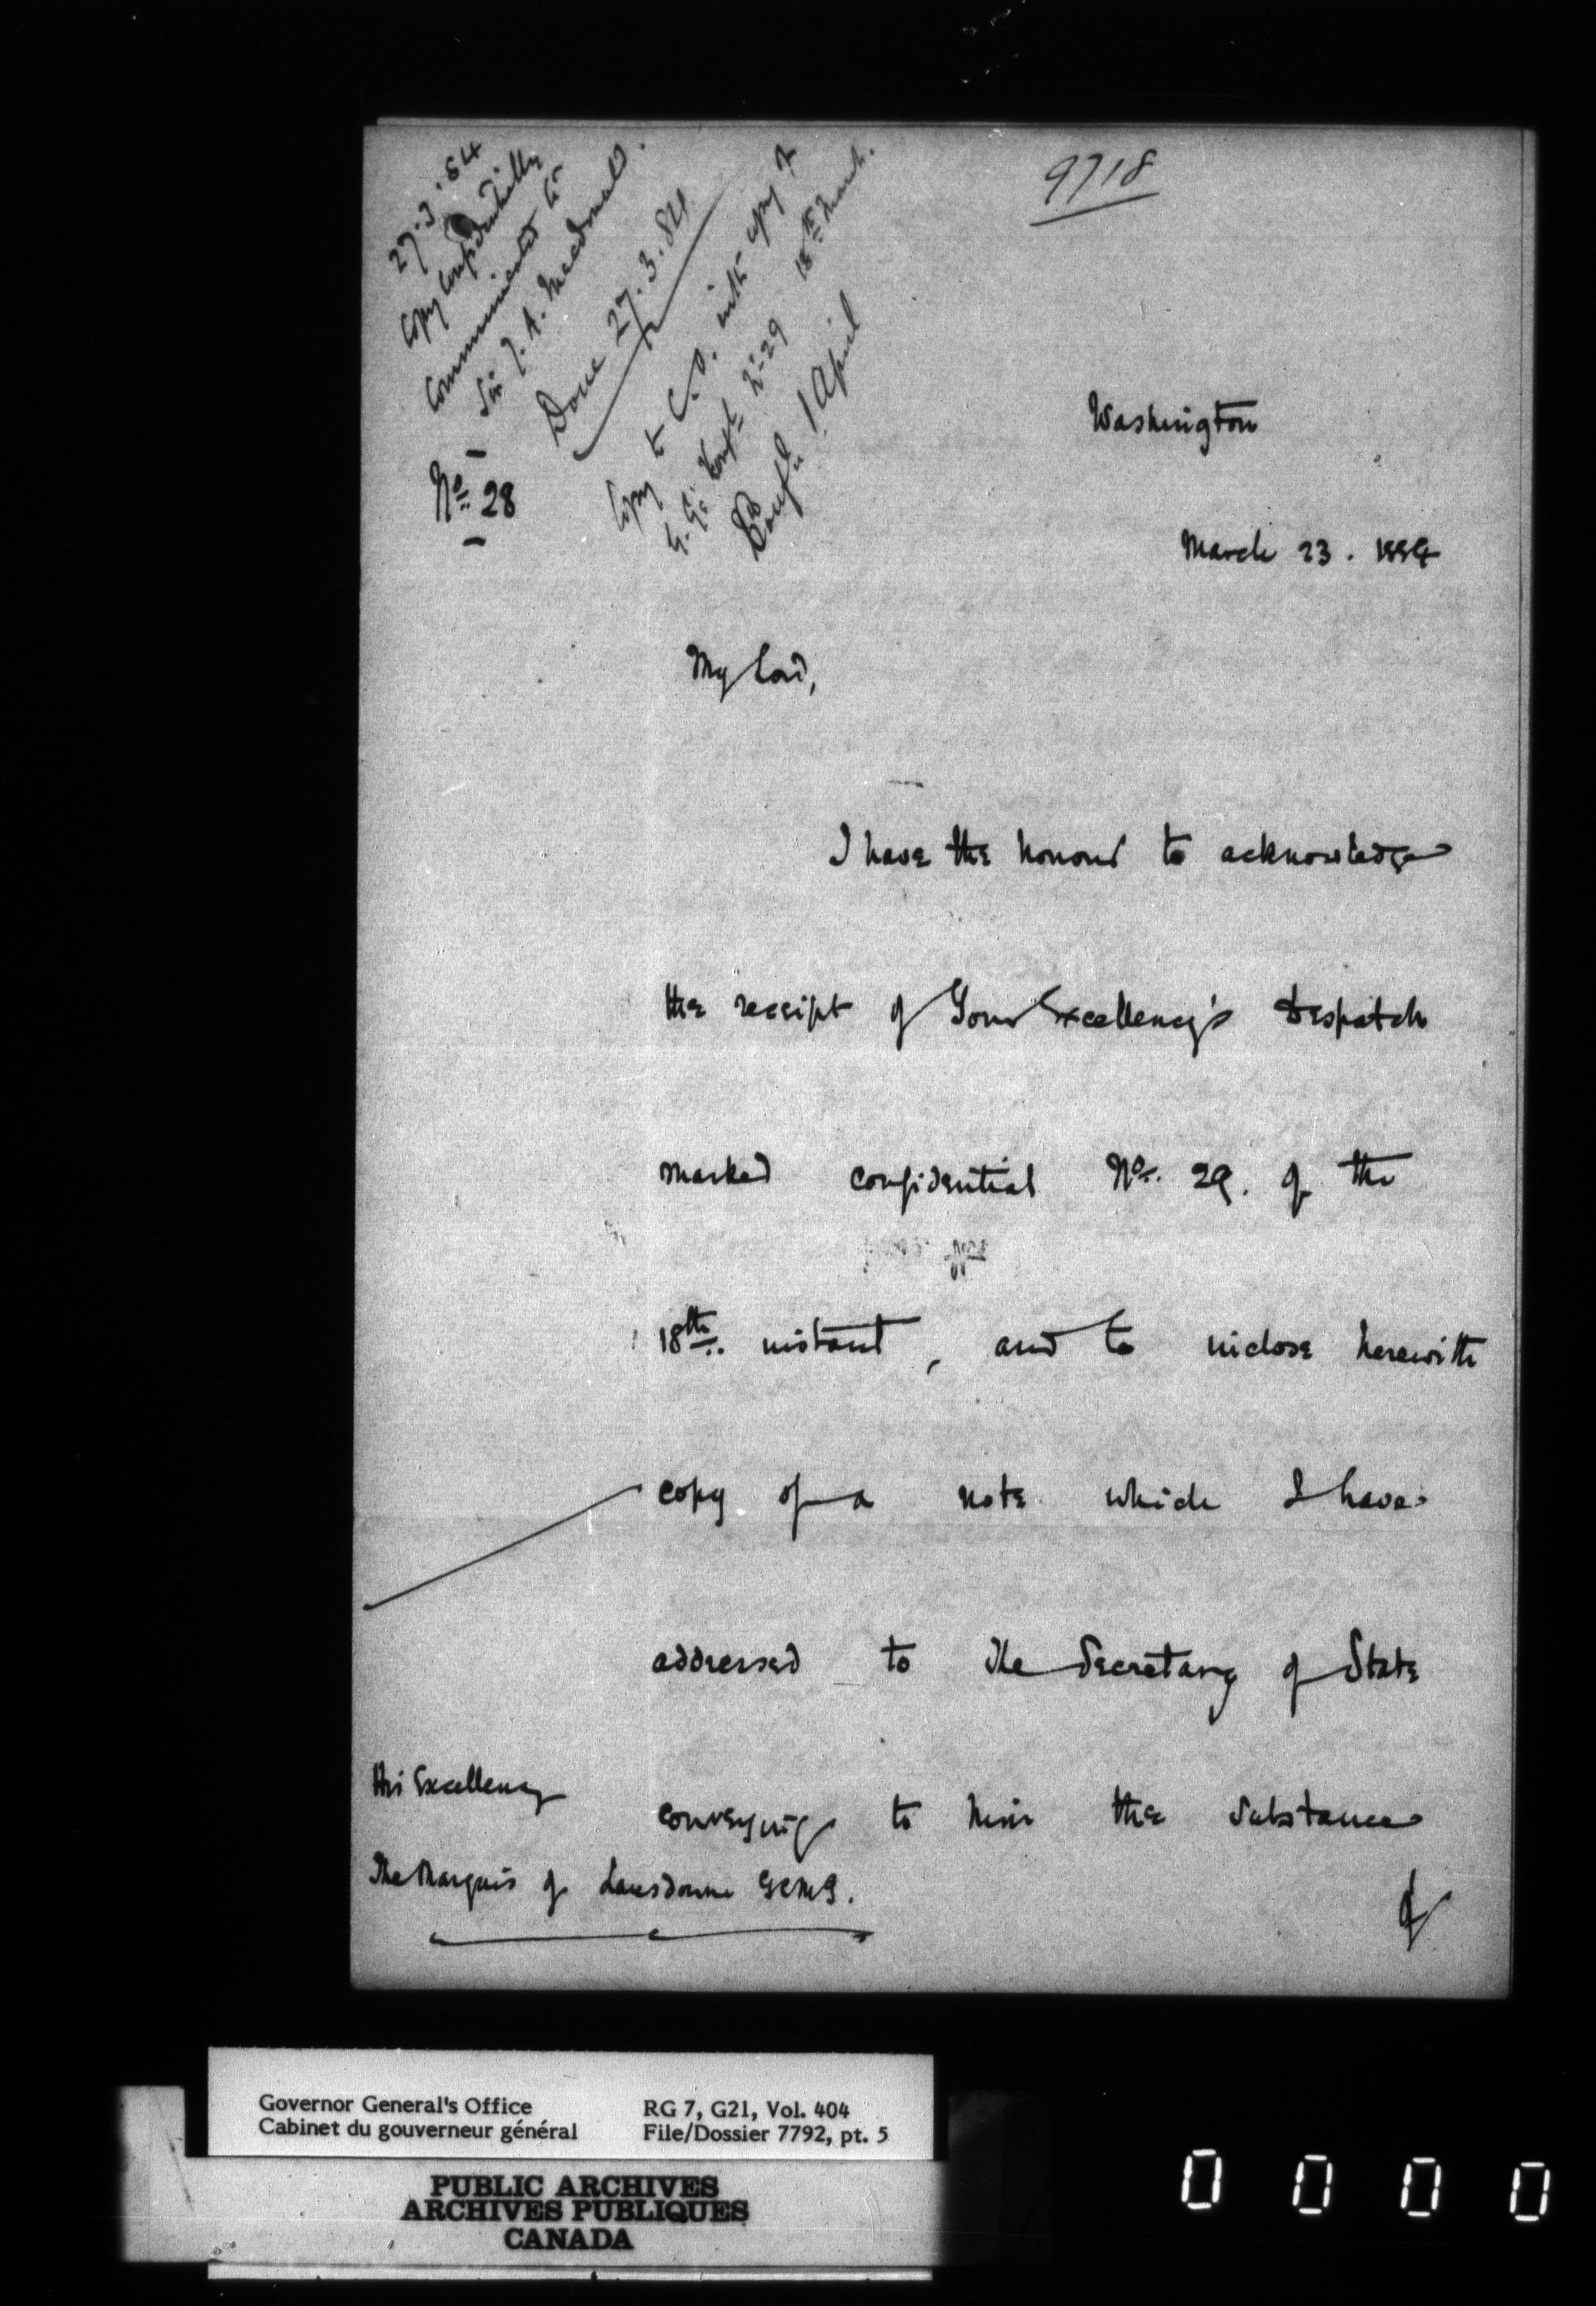 9718
27.3.84
Copy confidentially
communicated to
Sir J. A. Macdonald.
Done 27.3.84
Copy to C.O. with copy of
G.G's Confl No 29 18th March.
Confl 1 April
No 28
Washington
March 23. 1884
My Lord,
I have the honour to acknowledge
the receipt of Your Excellency's Despatch
marked confidential No. 29. of the
18th. instant, and to inclose herewith
copy of a note which I have
addressed to the Secretary of State
conveying to him the substance
of
His Excellency
The Marquis of Lansdowne GCMG.
Governor General's Office
Cabinet du gouverneur général
RG 7, G21, Vol. 404
File/Dossier 7792, pt. 5
PUBLIC ARCHIVES
ARCHIVES PUBLIQUES
CANADA
0 0 0 0